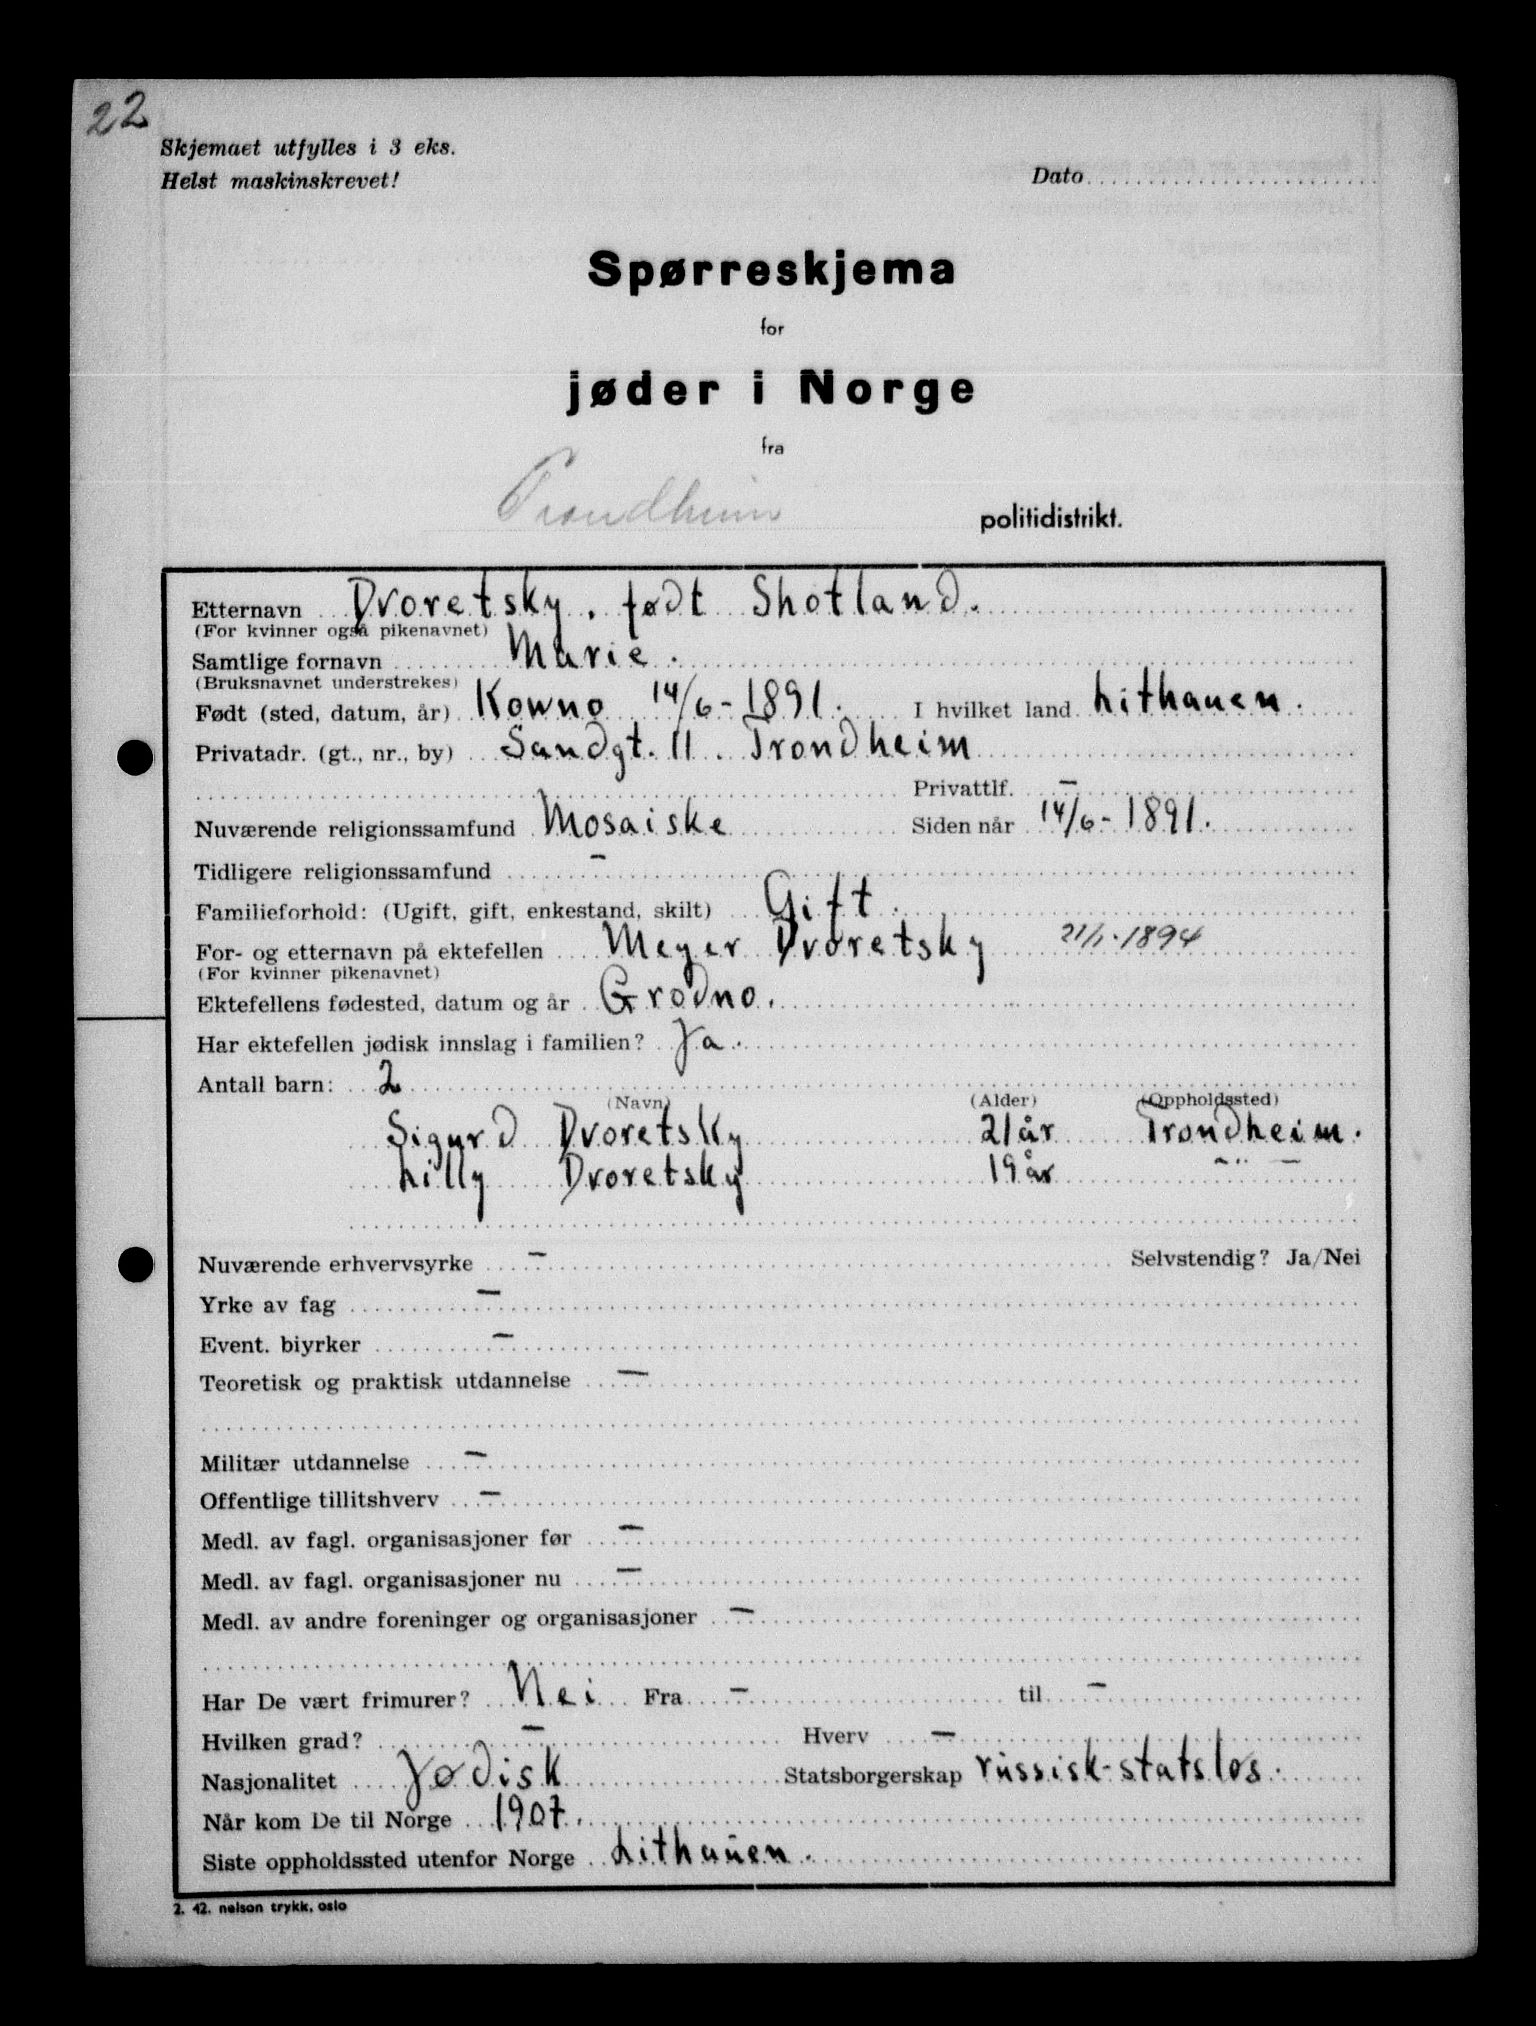 22
Skjemaet utfylles i 3 eks.
Helst maskinskrevet!
Dato
Spørreskjema
for
jøder i Norge
fra
Trondheim politidistrikt.
Etternavn Dvoretsky. født Shotland.
(For kvinner også pikenavnet)
Samtlige fornavn Marie.
(Bruksnavnet understrekes)
Født (sted, datum, år) Kowno 14/6-1891. I hvilket land Lithauen.
Privatadr. (gt., nr., by) Sandgt. 11. Trondheim
Privattlf. —
Nuværende religionssamfund Mosaiske Siden når 14/6-1891.
Tidligere religionssamfund —
Familieforhold: (Ugift, gift, enkestand, skilt) Gift.
For- og etternavn på ektefellen Meyer Dvoretsky 21/1.-1894
(For kvinner pikenavnet)
Ektefellens fødested, datum og år Grodno.
Har ektefellen jødisk innslag i familien? Ja.
Antall barn: 2
(Navn) (Alder) (Oppholdssted)
Sigurd Dvoretsky 21 år Trondheim.
Lilly Dvoretsky 19 år — " —
Nuværende erhvervsyrke — Selvstendig? Ja/Nei
Yrke av fag —
Event. biyrker —
Teoretisk og praktisk utdannelse —
Militær utdannelse —
Offentlige tillitshverv —
Medl. av fagl. organisasjoner før —
Medl. av fagl. organisasjoner nu —
Medl. av andre foreninger og organisasjoner —
Har De vært frimurer? Nei Fra — til —
Hvilken grad? — Hverv —
Nasjonalitet Jødisk Statsborgerskap russisk-statsløs.
Når kom De til Norge 1907.
Siste oppholdssted utenfor Norge Lithauen.
2. 42. nelson trykk, oslo